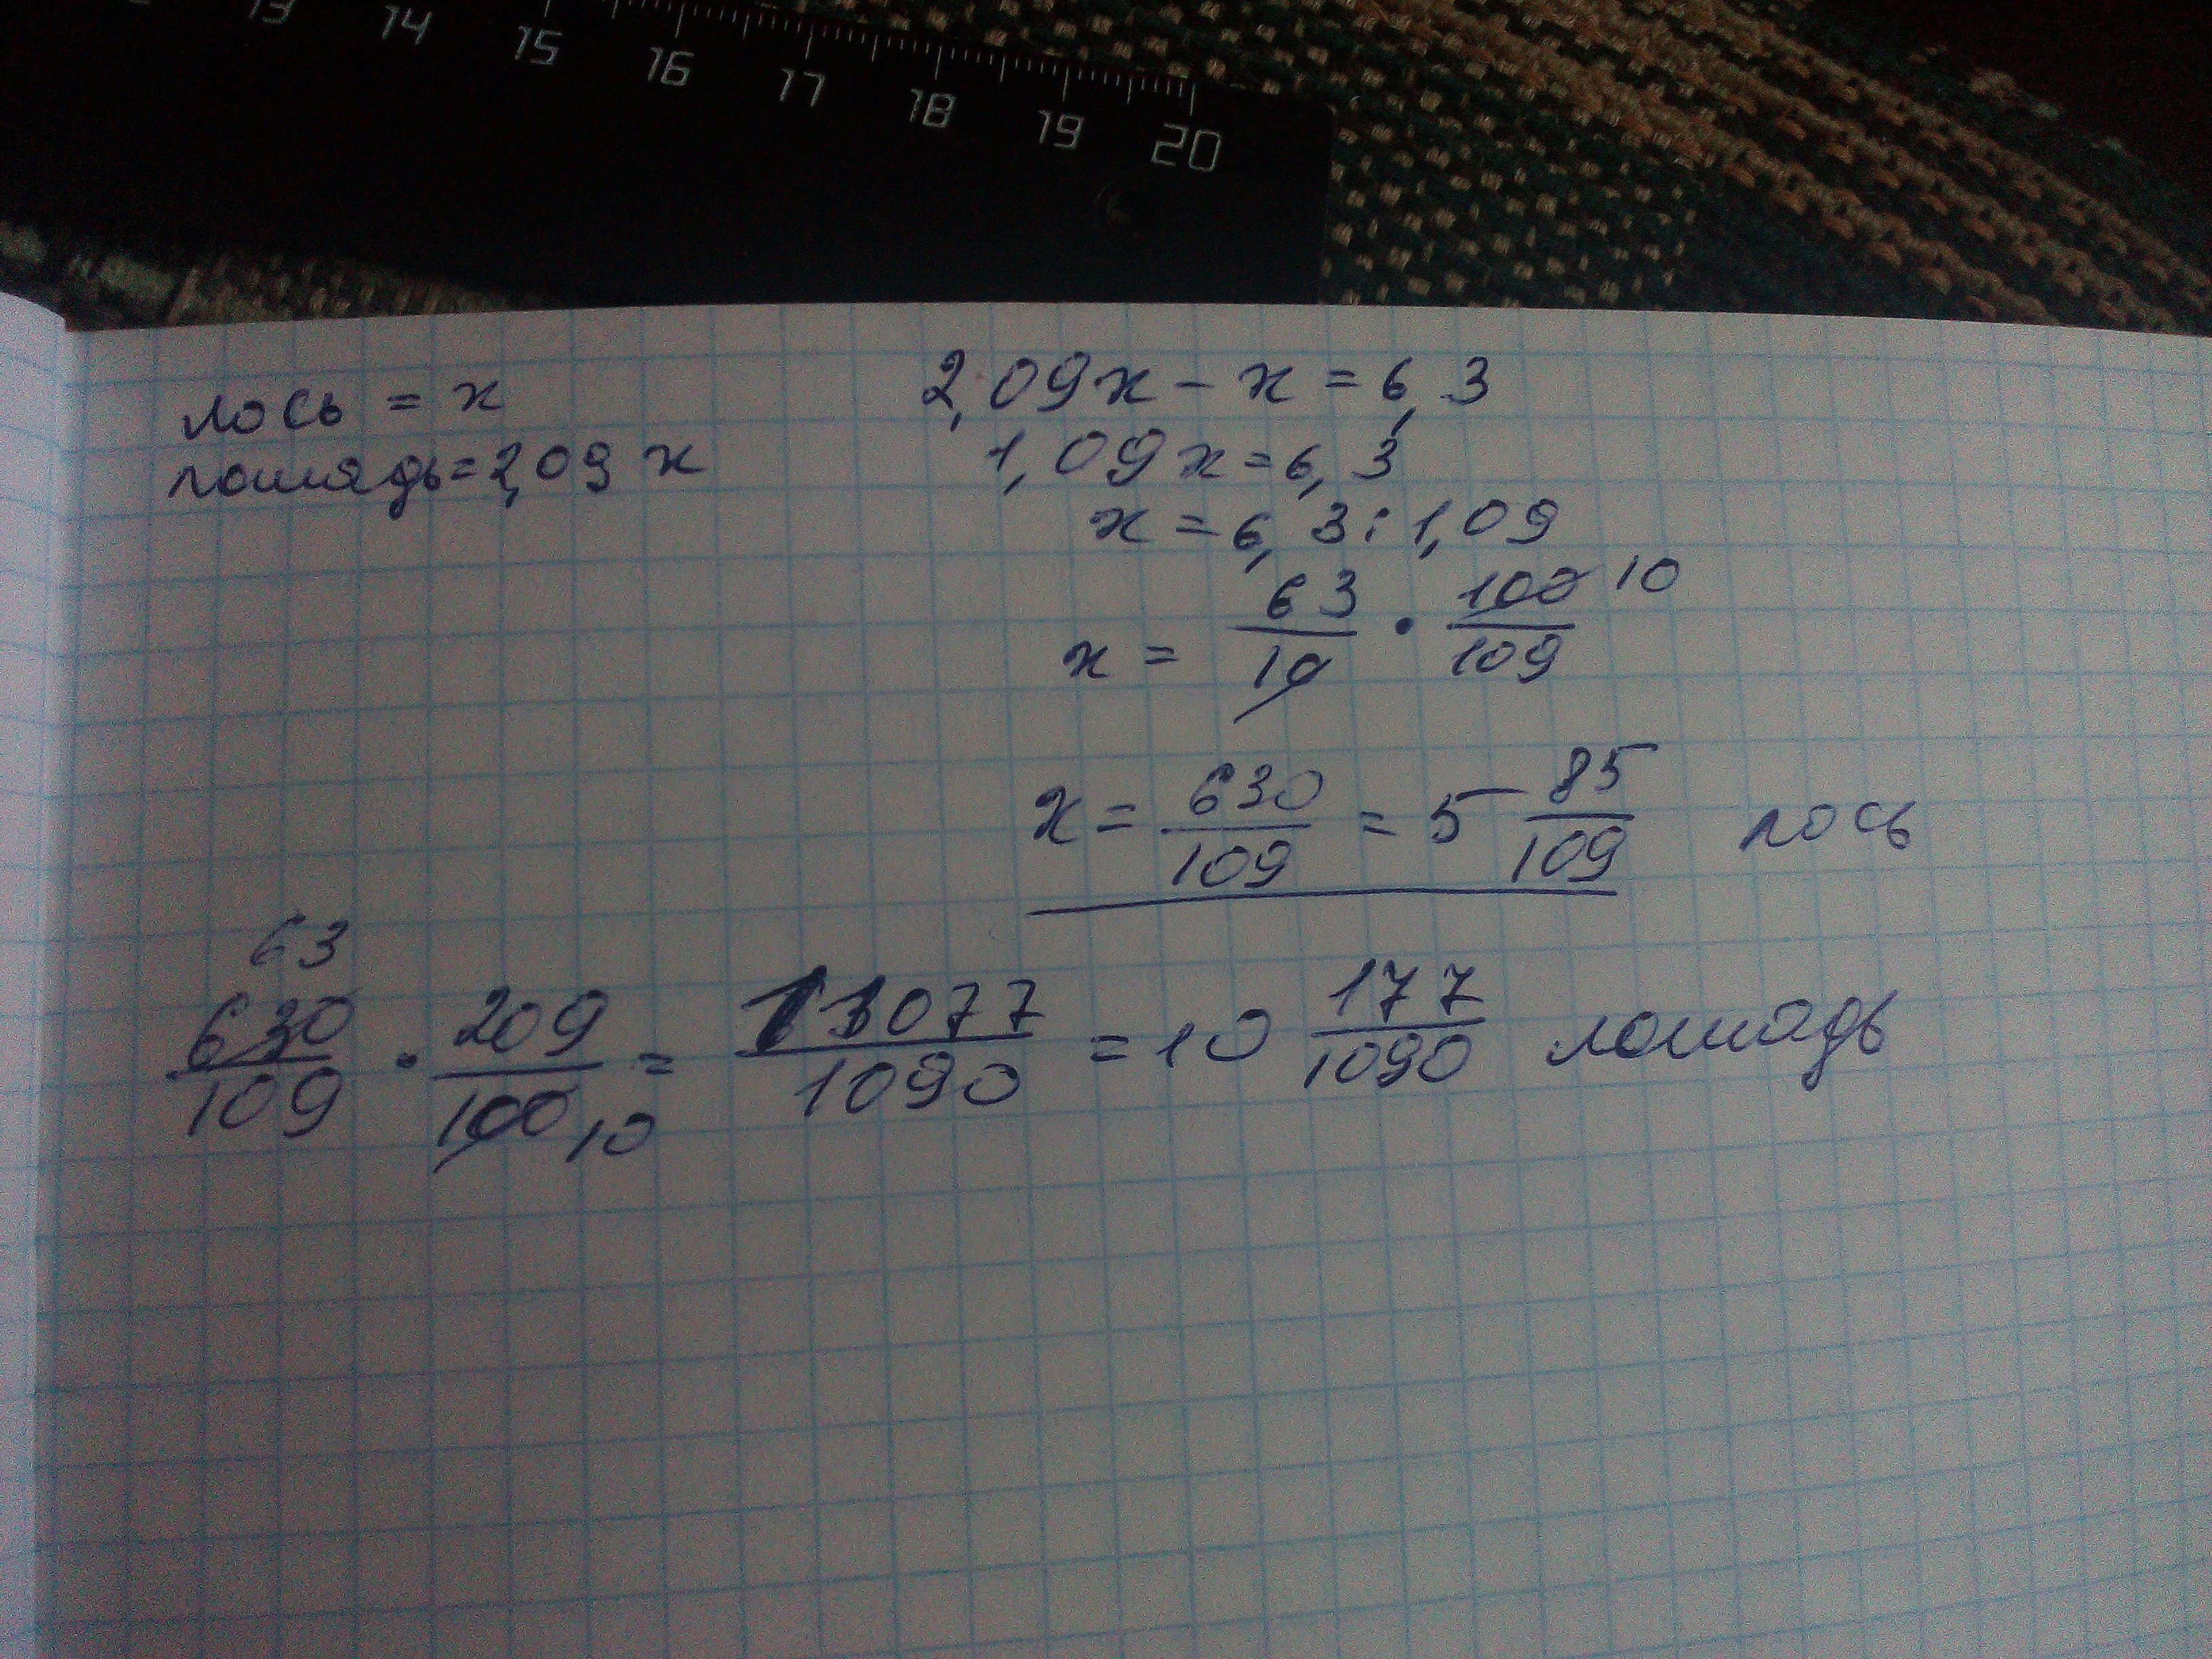 13 14 15 16 17 18 19 20
лось = x
лошадь = 2,09 x
2,09x - x = 6,3
1,09x = 6,3
x = 6,3 : 1,09
x = 63/10 · 100/109 10
x = 630/109 = 5 85/109 лось
63
630/109 · 209/100 10 = 11077/1090 = 10 177/1090 лошадь